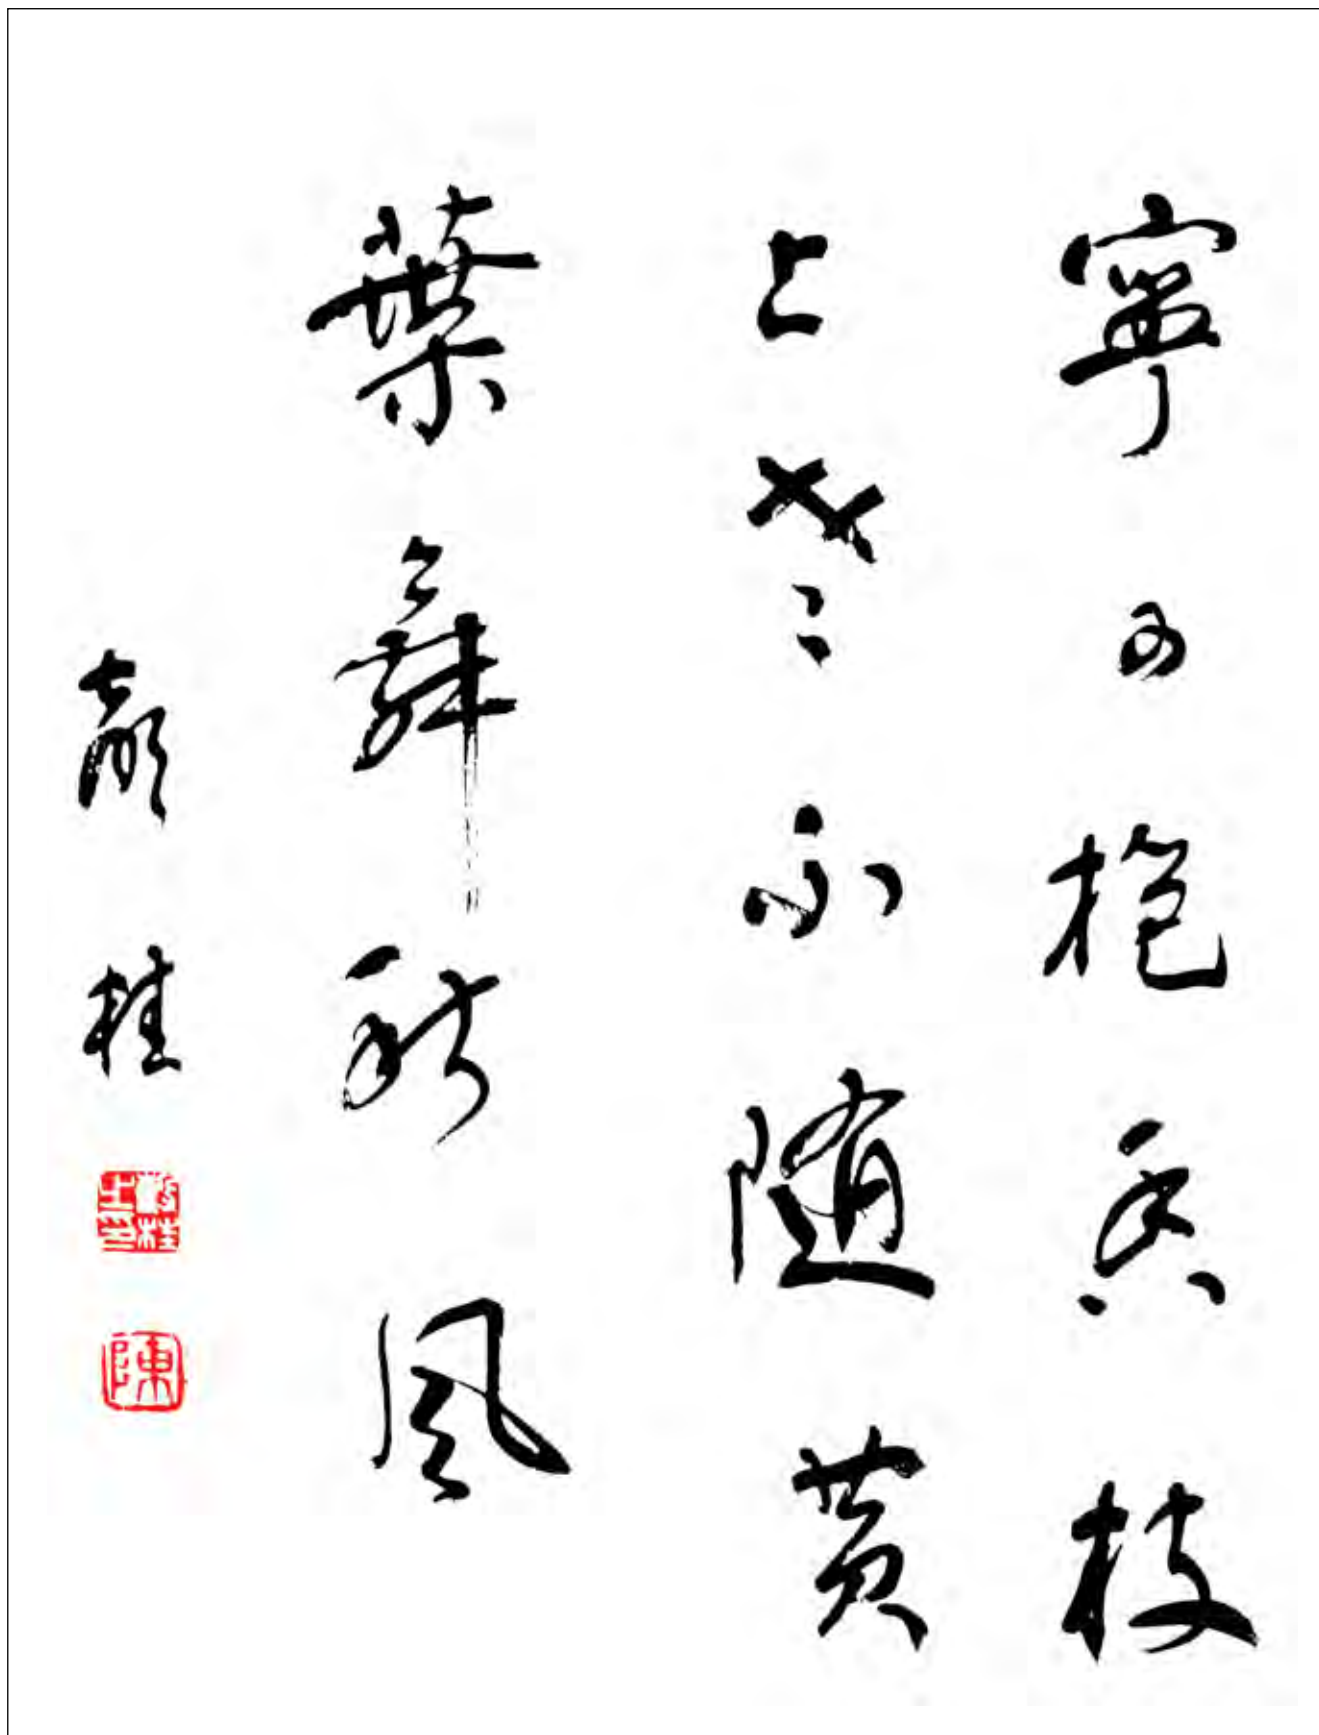 寧可抱香枝
上老不隨黃
葉舞秋風
桂
桂印
陳